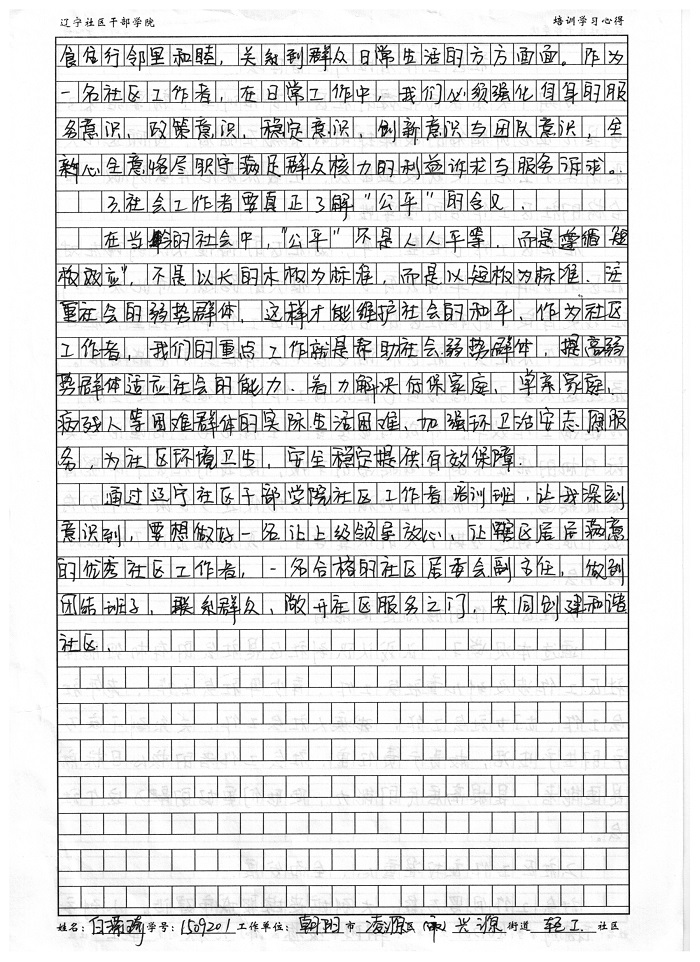 辽宁社区干部学院 培训学习心得
食住行邻里和睦，关系到群众日常生活的方方面面。作为
一名社区工作者，在日常工作中，我们必须强化自身的服
务意识、政策意识、稳定意识、创新意识与团队意识，全
新心全意恪尽职守满足群众核力的利益诉求与服务诉求。
3.社会工作者要真正了解“公平”的含义.
在当的社会中，“公平”不是人人平等，而是遵循 短
板效应”，不是以长的木板为标准，而是以短板为标准.注
重社会的弱势群体，这样才能维护社会的和平，作为社区
工作者，我们的重点工作就是帮助社会弱势群体，提高弱
势群体适应社会的能力.着力解决低保家庭、单亲家庭、
病残人等困难群体的实际生活困难、加强环卫治安志愿服
务，为社区环境卫生，安全稳定提供有效保障.
通过辽宁社区干部学院社区工作者培训班，让我深刻
意识到，要想做好一名让上级领导放心、让辖区居民满意
的优秀社区工作者，一名合格的社区居委会副主任，做到
团结班子，联系群众、敞开社区服务之门，共同创建和谐
社区.
姓名: 白 学号: 1509201 工作单位: 朝阳 市 凌源 区(市) 兴源 街道 轻工 社区